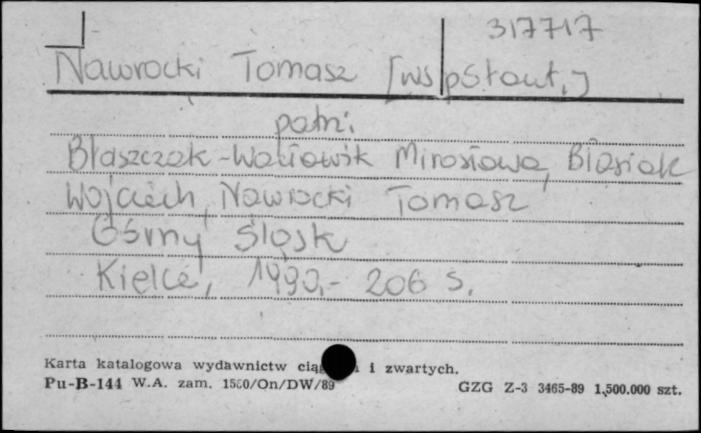 317717
Nawrocki Tomasz [współaut.]
patrz:
Błaszczak-Wacławik Mirosława, Błasiak
Wojciech, Nawrocki Tomasz
Górny Śląsk
Kielce, 1990.- 206 s.
Karta katalogowa wydawnictw ciąg i zwartych.
Pu-B-144 W.A. zam. 1580/On/DW/89 GZG Z-3 3465-89 1,500.000 szt.